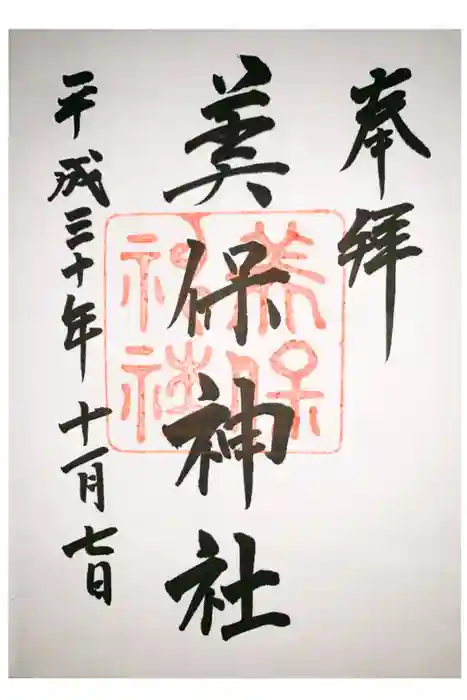 奉拝
美保神社
美保
神社
平成三十年十一月七日